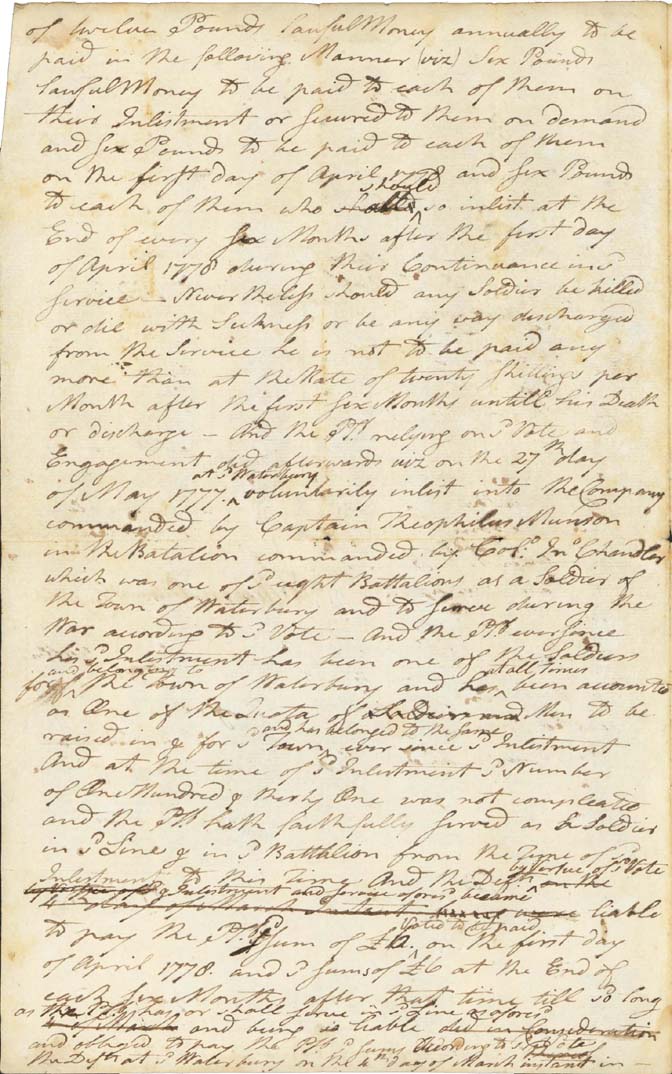 of twelve Pounds Lawful Money annually to be
paid in the following Manner (viz) Six Pounds
Lawful Money to be paid to each of them on
their Inlistment or secured to them on demand
and Six Pounds to be paid to each of them
on the first day of April 1778 and Six Pounds
should
to each of them who so inlist at the
End of every Six Months after the first day
of April 1778 during their Continuance in sd
Service – Nevertheless should any Soldier be killed
or die with Sickness or be any way discharged
from the Service he is not to be paid any
more than at the Rate of twenty Shillings per
Month after the first Six Months untill his Death
or discharge – And the Ptf relying on sd Vote and
Engagement did afterwards viz on the 27th day
at sd Waterbury
of May 1777. voluntarily inlist into the Company
commanded by Captain Theophilus Munson
in the Batalion commanded by Colo. Jno Chandler
which was one of sd eight Battalions as a Soldier of
the Town of Waterbury and to serve during the
War acording to sd Vote – And the Ptf ever since
his sd Inlistment has been one of the Soldiers
and belonging to at all times
for the Town of Waterbury and has been acounted
as One of the Quota of Men to be
and has belonged to the same
raised in & for sd Town ever since sd Inlistment
And at the time of sd Inlistment sd Number
of One Hundred & thirty One was not compleated
and the Ptf hath faithfully served as a Soldier
in sd Line & in sd Battalion from the Time of sd
Inlistment to this Time And the Deft by vertue of sd Vote
& Inlistment and service aforesd became
liable
Voted to be paid
to pay the Ptf sd Sum of £12. on the first day
of April 1778. and sd Sums of £6 at the End of
each Six Months after that time till so long
as the Ptf has or shall serve in sd Line aforesd
and being so liable
and obliged to pay the Ptf sd Sums According to sd Vote
the Deft at sd Waterbury on the 4th day of March instant in –